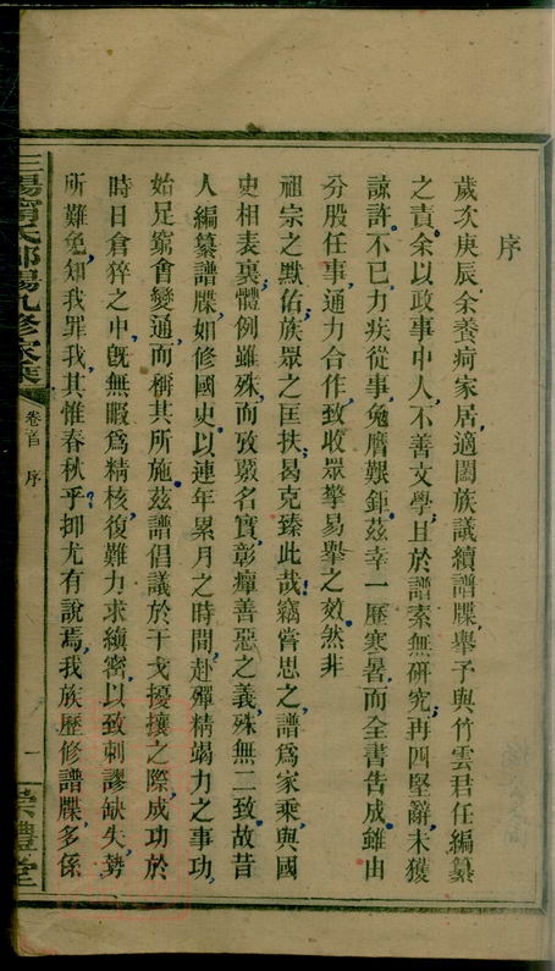 序
歲次庚辰余養疴家居適闔族議續譜牒舉予與竹雲君任編纂
之責余以政事中人不善文學且於譜素無研究再四堅辭未獲
諒許不已力疾從事勉膺艱鉅茲幸一歷寒暑而全書告成雖由
分股任事通力合作致收眾擎易舉之效然非
祖宗之默佑族眾之匡扶曷克臻此哉竊嘗思之譜爲家乘與國
史相表裏體例雖殊而攷覈名實彰癉善惡之義殊無二致故昔
人編纂譜牒如修國史以連年累月之時間赴殫精竭力之事功
始足窮會變通而稱其所施茲譜倡議於干戈擾攘之際成功於
時日倉猝之中旣無暇爲精核復難力求縝密以致刺謬缺失勢
所難免知我罪我其惟春秋乎抑尤有說焉我族歷修譜牒多係
卷首 序
一